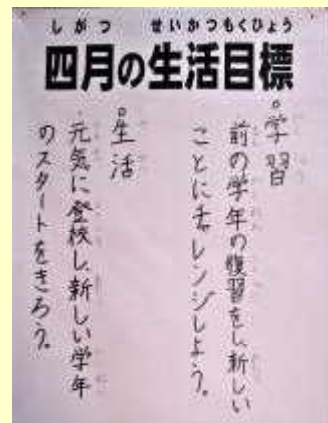 しがつ せいかつもくひょう
四月の生活目標
◦学習
前の学年の復習をし、新しい
ことにチャレンジしよう。
◦生活
元気に登校し、新しい学年
のスタートをきろう。